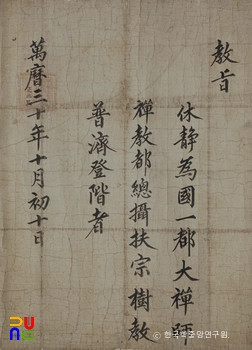 教旨
休静為國一都大禪師
禪教都總攝扶宗樹教
普濟登階者
萬曆三十年十月初十日
© 한국학중앙연구원